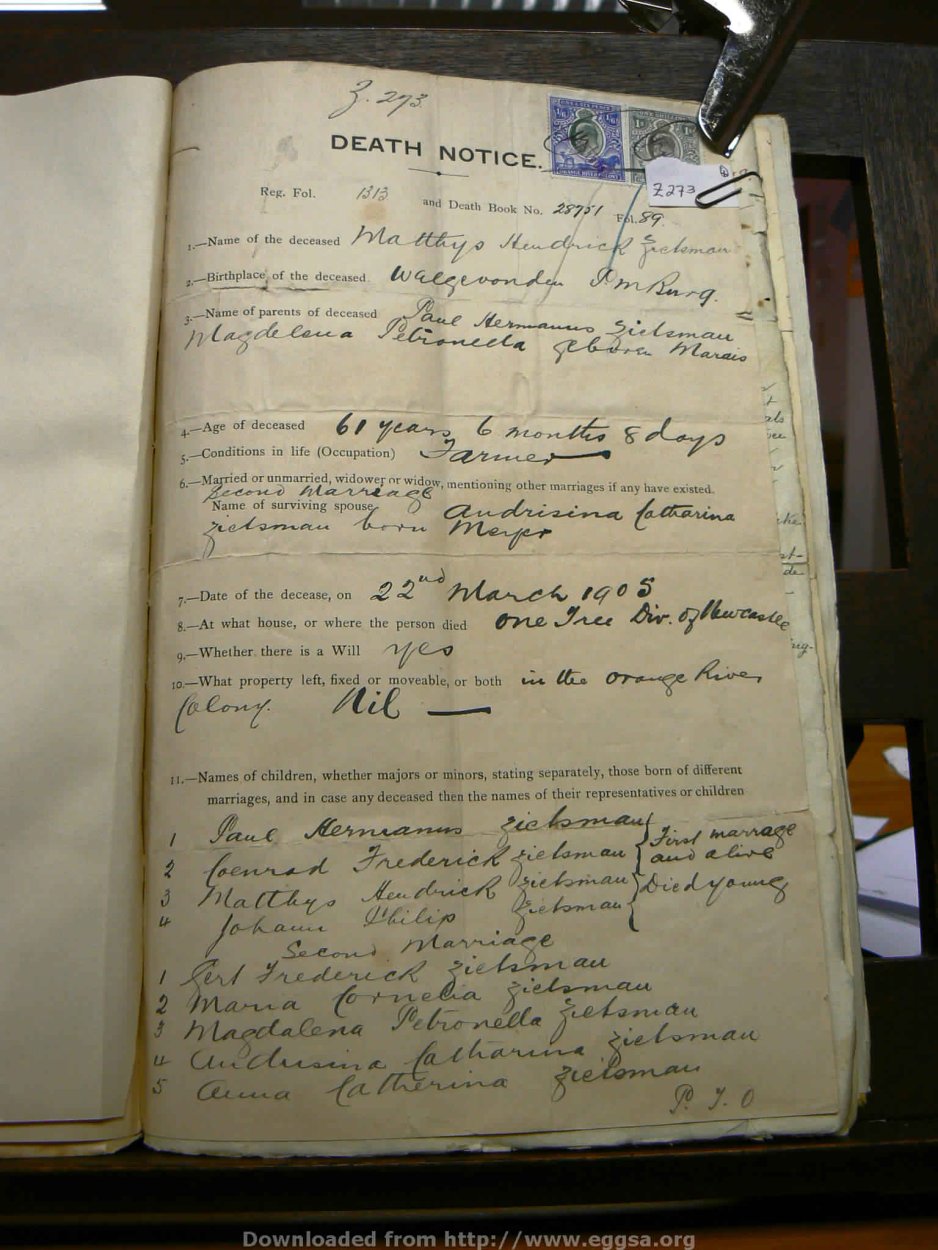 Z. 273.
DEATH NOTICE.
Z 273
Reg. Fol. 1313 and Death Book No. 28751 Fol. 89.
1.—Name of the deceased Matthys Hendrick Zietsman
2.—Birthplace of the deceased Walgevonden P m Burg.
3.—Name of parents of deceased Paul Hermanus Zietsman
Magdelena Petronella geboren Marais
4.—Age of deceased 61 years 6 months 8 days
5.—Conditions in life (Occupation) Farmer
6.—Married or unmarried, widower or widow, mentioning other marriages if any have existed.
Second Marriage
Name of surviving spouse Andrisina Catharina
Zietsman born Meyer
7.—Date of the decease, on 22nd March 1905
8.—At what house, or where the person died One Tree Div. of Newcastle
9.—Whether there is a Will yes
10.—What property left, fixed or moveable, or both in the Orange River
Colony. Nil —
11.—Names of children, whether majors or minors, stating separately, those born of different
marriages, and in case any deceased then the names of their representatives or children
1 Paul Hermanus Zietsman } First marrage
2 Coenrad Frederick Zietsman } and alive
3 Matthys Hendrick Zietsman } Died young
4 Johann Philip Zietsman }
Second Marriage
1 Gert Frederick Zietsman
2 Maria Cornelia Zietsman
3 Magdalena Petronella Zietsman
4 Andrisina Catharina Zietsman
5 Anna Catherina Zietsman
P. T. O
Downloaded from http://www.eggsa.org